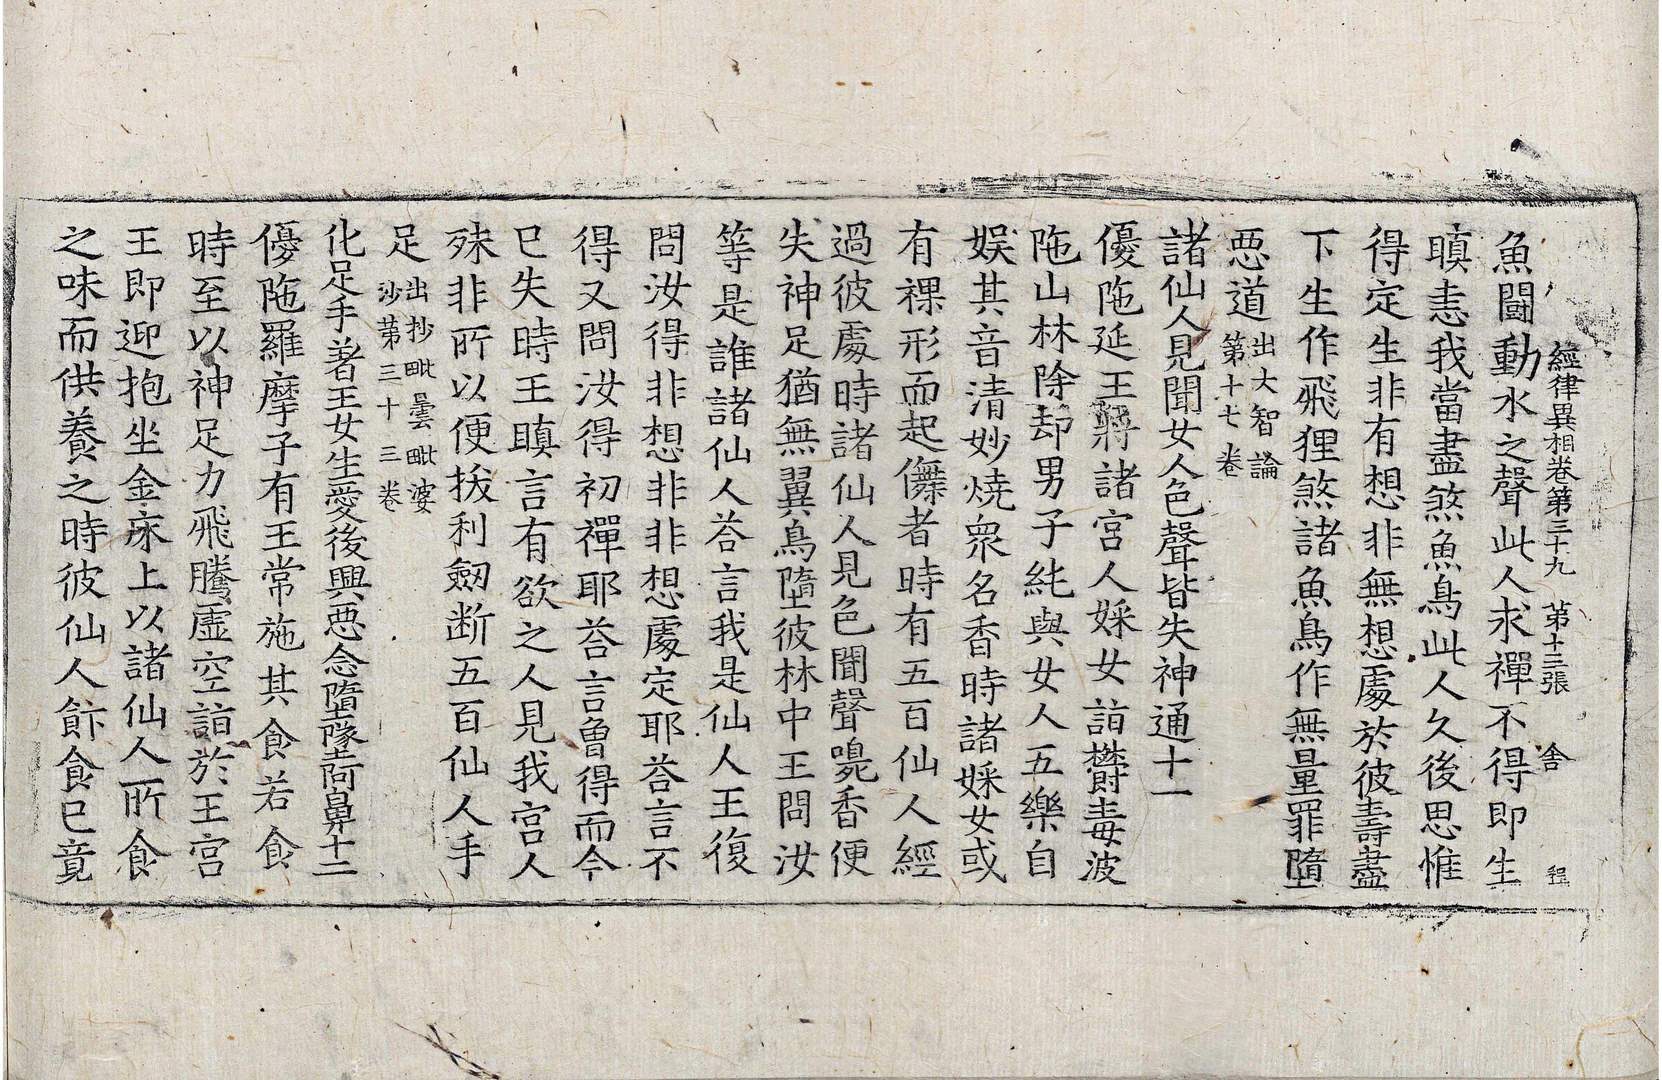 經律異相卷第三十九 第十三張 舍 程
魚鬪動水之聲此人求禪不得即生
瞋恚我當盡煞魚鳥此人久後思惟
得定生非有想非無想處於彼壽盡
下生作飛狸煞諸魚鳥作無量罪墮
惡道出大智論第十七卷
諸仙人見聞女人色聲皆失神通十一
優陁延王將諸宮人婇女詣欝毒波
陁山林除却男子純與女人五樂自
娛其音清妙燒衆名香時諸婇女或
有裸形而起儛者時有五百仙人經
過彼處時諸仙人見色聞聲嗅香便
失神足猶無翼鳥墮彼林中王問汝
等是誰諸仙人荅言我是仙人王復
問汝得非想非非想處定耶荅言不
得又問汝得初禪耶荅言曾得而今
已失時王瞋言有欲之人見我宮人
殊非所以便拔利劒断五百仙人手
足出抄毗曇毗婆沙第三十三卷
化足手著王女生愛後興惡念墮墜阿鼻十二
優陁羅摩子有王常施其食若食
時至以神足力飛騰虛空詣於王宮
王即迎抱坐金床上以諸仙人所食
之味而供養之時彼仙人飰食已竟